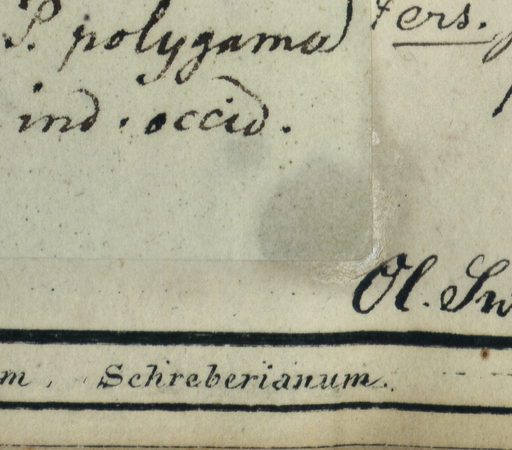 P. polygama
ind. occid.
Pers.
Ol. Sw
m. Schreberianum.